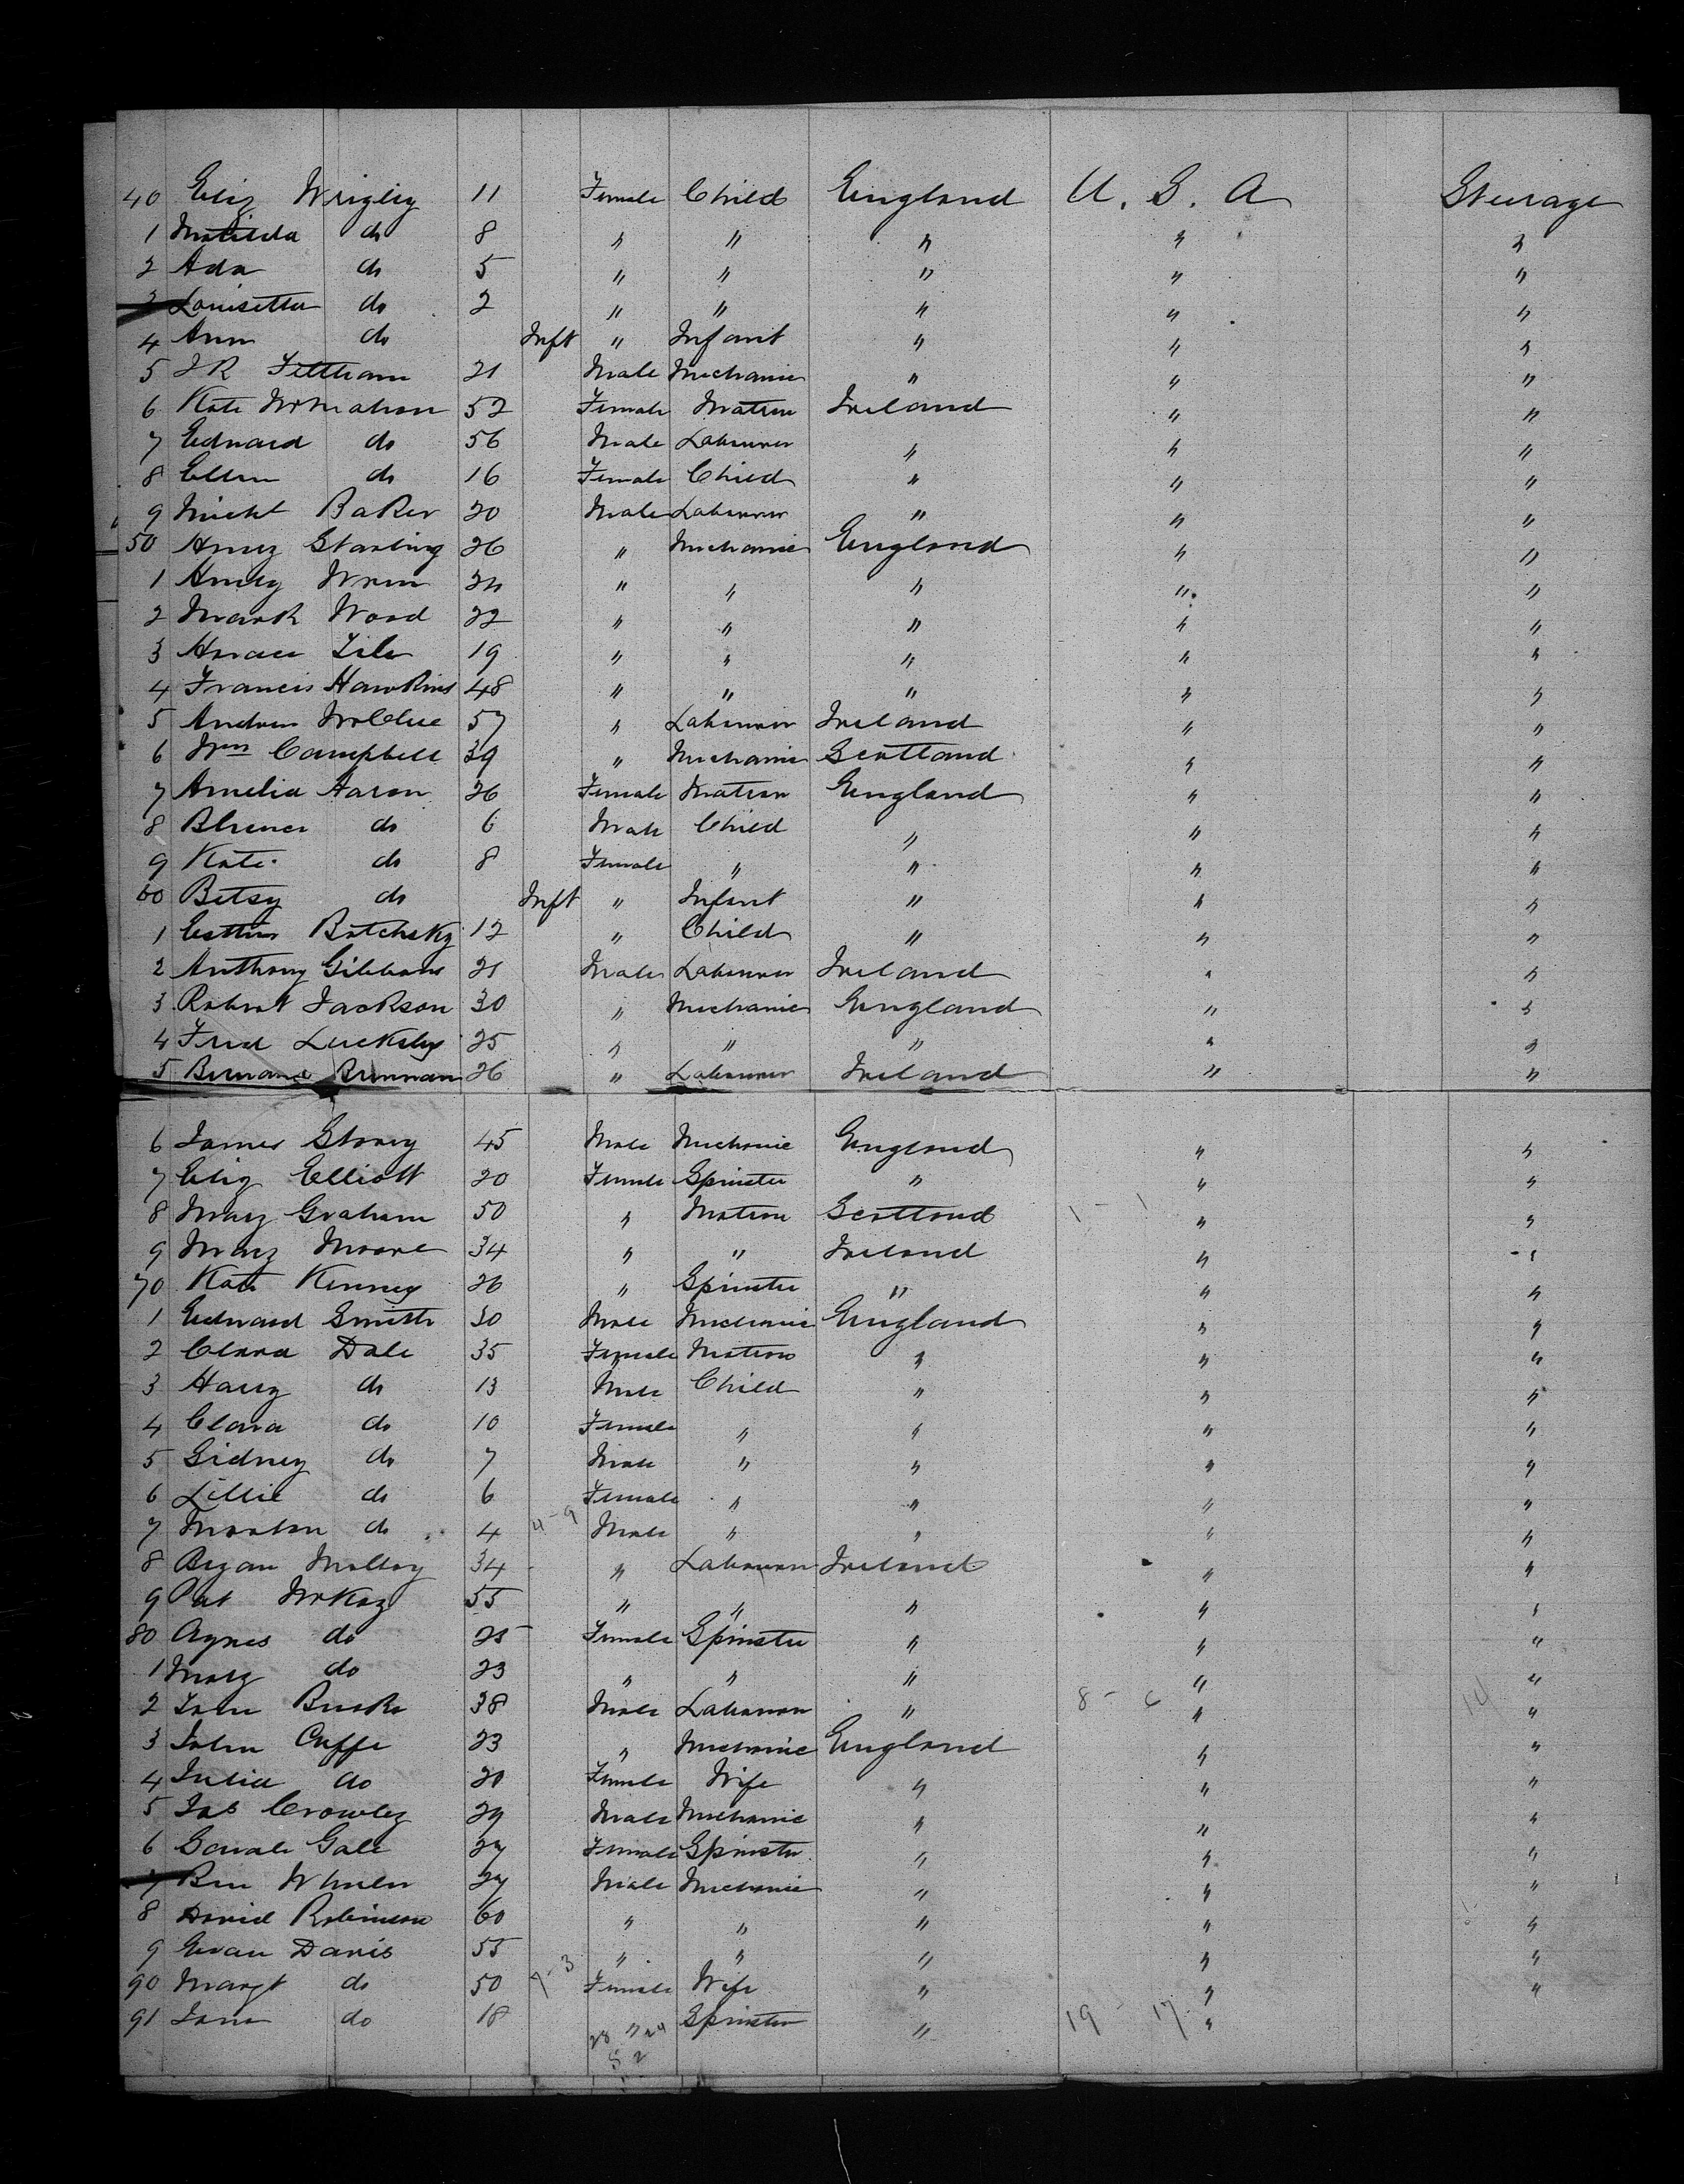 40 Eliz Wrigley 11 Female Child England U. S. A Steerage
1 Matilda do 8 " " " " "
2 Ada do 5 " " " " "
3 Louisetta do 2 " " " " "
4 Ann do Inft " Infant " " "
5 J R Feltham 21 Male Mechanic " " "
6 Kate McMahon 52 Female Matron Ireland " "
7 Edward do 56 Male Labourer " " "
8 Ellen do 16 Female Child " " "
9 Michl Baker 20 Male Labourer " " "
50 Henry Starling 26 " Mechanic England " "
1 Henry Wren 24 " " " " "
2 Mark Wood 22 " " " " "
3 Horace 19 " " " " "
4 Francis Hawkins 48 " " " " "
5 Andrew McClue 57 " Labourer Ireland " "
6 Wm Campbell 39 " Mechanic Scotland " "
7 Amelia Aaron 26 Female Matron England " "
8 do 6 Male Child " " "
9 Kate do 8 Female " " " "
60 Betsy do Inft " Infant " " "
1 Esther Botchsky 12 " Child " " "
2 Anthony Gibbons 21 Male Labourer Ireland " "
3 Robert Jackson 30 " Mechanic England " "
4 Fred 25 " " " " "
5 Bernard Brennan 26 " Labourer Ireland " "
6 James Storey 45 Male Mechanic England " "
7 Eliz Elliott 20 Female Spinster " " "
8 Mary Graham 50 " Matron Scotland 1 - 1 " "
9 Mary Moore 34 " " Ireland " "
70 Kate Kenney 26 " Spinster " " "
1 Edward Smith 30 Male Mechanic England " "
2 Clara Dale 35 Female Matron " " "
3 Harry do 13 Male Child " " "
4 Clara do 10 Female " " " "
5 Sidney do 7 Male " " " "
6 Lillie do 6 Female " " " "
7 Morton do 4 4-9 Male " " " "
8 Bryan Molloy 34 " Labourer Ireland " "
9 Pat McKay 55 " " " " "
80 Agnes do 25 Female Spinster " " "
1 Mary do 23 " " " " "
2 John Burke 38 Male Labourer " 8 - 6 " 14 "
3 John Cuffe 23 " Mechanic England " "
4 Julia do 20 Female Wife " " "
5 Jas Crowley 29 Male Mechanic " " "
6 Sarah Gale 27 Female Spinster " " "
7 Ben Wheeler 27 Male Mechanic " " "
8 David Robinson 60 " " " " "
9 Evan Davis 55 " " " " "
90 Margt do 50 7-3 Female Wife " " "
91 Jane do 18 " Spinster " 19 - 17 "
28 24
5 2